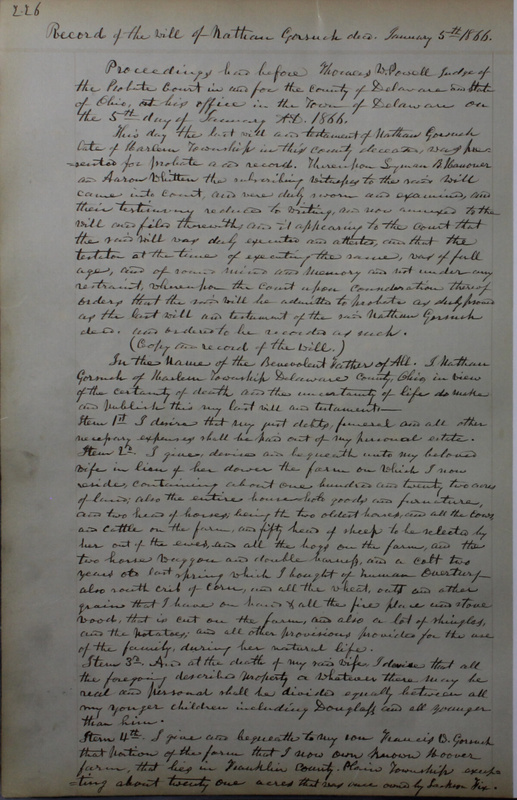 226
Record of the Will of Nathan Gorsuch decd. January 5th 1866.
Proceedings had before Thomas W. Powell Judge of
the Probate Court in and for the County of Delaware and State
of Ohio, at his office in the Town of Delaware on
the 5th day of January A.D. 1866.
This day the last will and testament of Nathan Gorsuch
late of Harlem Township in this County deceased was pre-
sented for probate and record. Thereupon Lyman B. Hanover
and Aaron Whitten the subscribing witnesses to the said Will
came into Court, and were duly sworn and examined, and
their testimony reduced to writing, and now annexed to the
will and filed therewith and it appearing to the Court that
the said Will was duly executed and attested, and that the
testator at the time of executing the same, was of full
age, and of sound mind and memory and not under any
restraint, whereupon the Court upon consideration thereof
orders that the said will be admitted to probate as duly proved
as the last will and testament of the said Nathan Gorsuch
decd. and ordered to be recorded as such.
(Copy and record of the Will.)
In the Name of the Benevolent Father of All. I Nathan
Gorsuch of Harlem Township Delaware County, Ohio, in view
of the certainty of death and the uncertainty of life do make
and publish this my last will and testament:—
Item 1st I desire that my just debts, funeral and all other
necessary expenses shall be paid out of my personal estate.
Item 2d. I give, devise and bequeath unto my beloved
wife in lieu of her dower the farm on which I now
reside, containing about one hundred and twenty two acres
of land; also the entire household goods and furniture,
and two head of horses, being the two oldest horses, and all the cows
and cattle on the farm, and fifty head of sheep to be selected by
her out of the ewes, and all the hogs on the farm, and the
two horse waggon and double harness, and a colt two
years old last spring which I bought of Overturf
also south crib of corn, and all the wheat, oats and other
grain that I have on hand & all the fire place and stove
wood, that is cut on the farm, and also a lot of shingles,
and the potatoes; and all other provisions provided for the use
of the family, during her natural life.
Item 3d. And at the death of my said wife, I devise that all
the foregoing described property or whatever there may be
real and personal shall be divided equally between all
my yonger children including Douglass, and all younger
than him.
Item 4th. I give and bequeath to my son Francis B. Gorsuch
that portion of the farm that I now own known Hoover
farm, that lies in Franklin County. Plain Township excep-
ting about twenty one acres that was once owned by Jackson Fix.